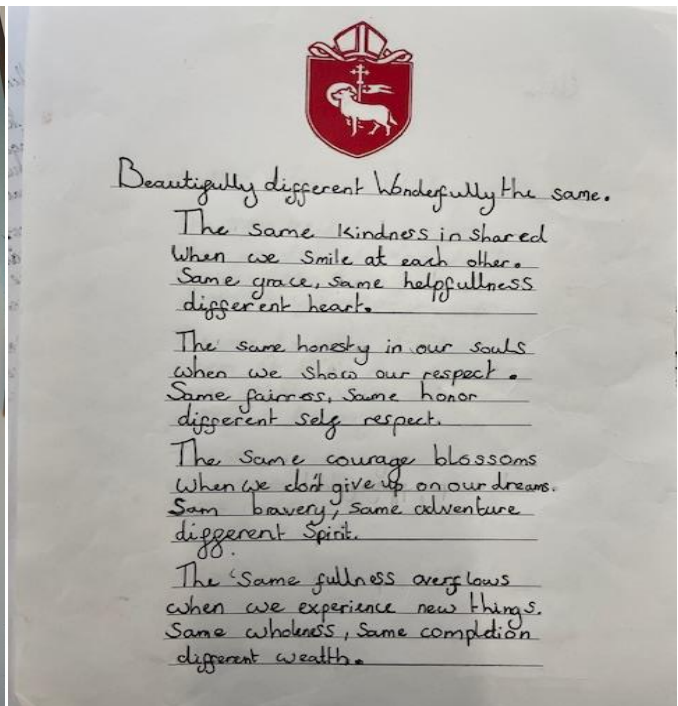 Beautifully different Wonderfully the same.
The same kindness in shared
When we smile at each other.
Same grace, same helpfullness
different heart.
The same honesty in our souls
when we show our respect.
Same fairness, same honor
different self respect.
The same courage blossoms
when we don't give up on our dreams.
Sam bravery, same adventure
different Spirit.
The Same fullness overflows
when we experience new things.
Same wholeness, same completion
different wealth.